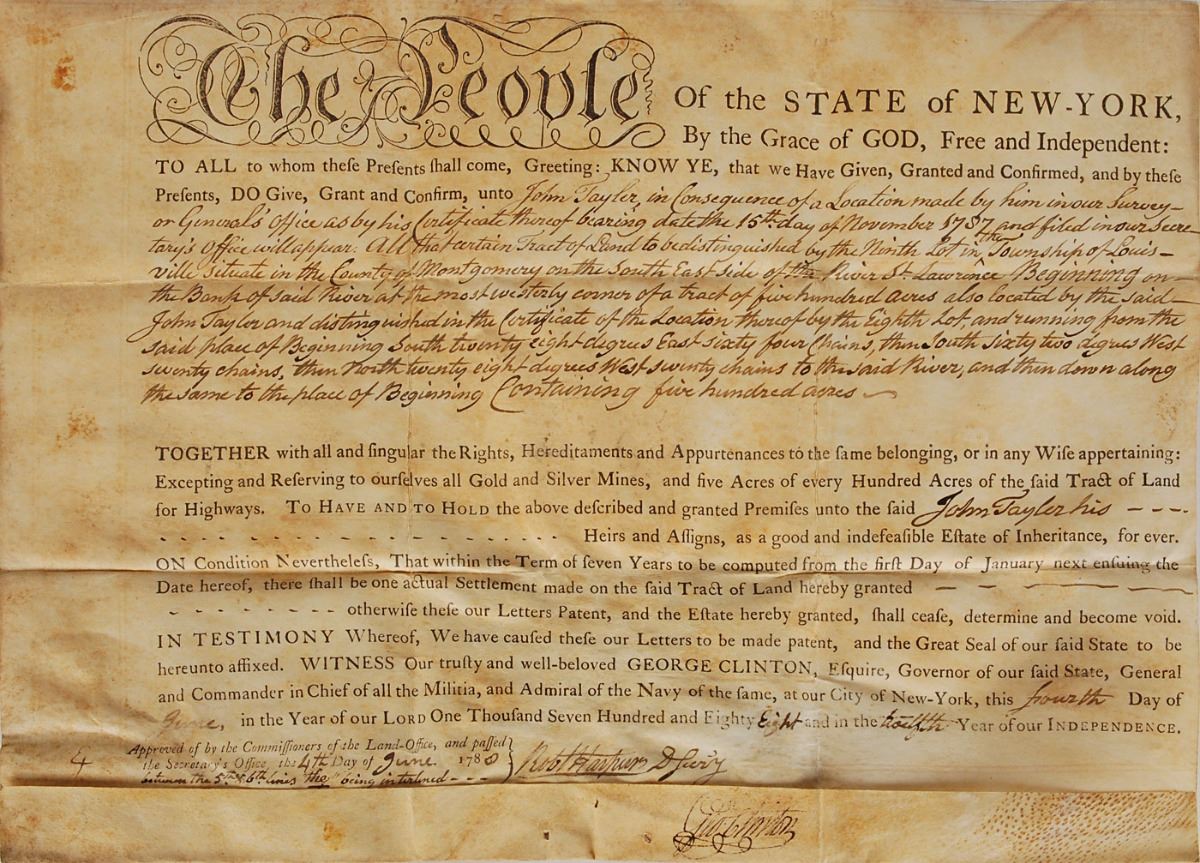 The People Of the STATE of NEW-YORK,
By the Grace of GOD, Free and Independent:
TO ALL to whom theſe Preſents ſhall come, Greeting: KNOW YE, that we Have Given, Granted and Confirmed, and by theſe
Preſents, DO Give, Grant and Confirm, unto John Tayler, in Consequence of a Location made by him in our Survey–
or General's Office as by his Certificate thereof bearing date the 15th day of November 1787 and filed in our Secre–
tary's Office will appear: All that certain Tract of Land to be distinguished by the Ninth Lot in the Township of Louis–
ville situate in the County of Montgomery on the South East side of the River St Lawrence Beginning on–
the Bank of said River at the most westerly corner of a tract of five hundred acres also located by the said–
John Tayler and distinguished in the Certificate of the Location thereof by the Eighth Lot, and running from the
said place of Beginning South twenty eight degrees East sixty four Chains, then South sixty two degrees West
seventy chains, then North twenty eight degrees West seventy chains to the said River, and then down along
the same to the place of Beginning Containing five hundred acres –
TOGETHER with all and ſingular the Rights, Hereditaments and Appurtenances to the ſame belonging, or in any Wiſe appertaining:
Excepting and Reſerving to ourſelves all Gold and Silver Mines, and five Acres of every Hundred Acres of the ſaid Tract of Land
for Highways. TO HAVE AND TO HOLD the above deſcribed and granted Premiſes unto the ſaid John Tayler his – – – -
- - - - - - - - - - - - - - - - - Heirs and Aſſigns, as a good and indefeaſible Eſtate of Inheritance, for ever.
ON Condition Nevertheleſs, That within the Term of ſeven Years to be computed from the firſt Day of January next enſuing the
Date hereof, there ſhall be one actual Settlement made on the ſaid Tract of Land hereby granted – – – – –
- - - - - - - - otherwiſe theſe our Letters Patent, and the Eſtate hereby granted, ſhall ceaſe, determine and become void.
IN TESTIMONY Whereof, We have cauſed theſe our Letters to be made patent, and the Great Seal of our ſaid State to be
hereunto affixed. WITNESS Our truſty and well-beloved GEORGE CLINTON, Eſquire, Governor of our ſaid State, General
and Commander in Chief of all the Militia, and Admiral of the Navy of the ſame, at our City of New-York, this fourth Day of
June, in the Year of our LORD One Thouſand Seven Hundred and Eighty Eight and in the twelfth Year of our INDEPENDENCE.
Approved of by the Commiſſioners of the Land-Office, and paſſed
the Secretary's Office, the 4th Day of June 1788 Robt Harpur D Secry
between the 5th & 6th lines "the" being interlined - - -
Geo Clinton